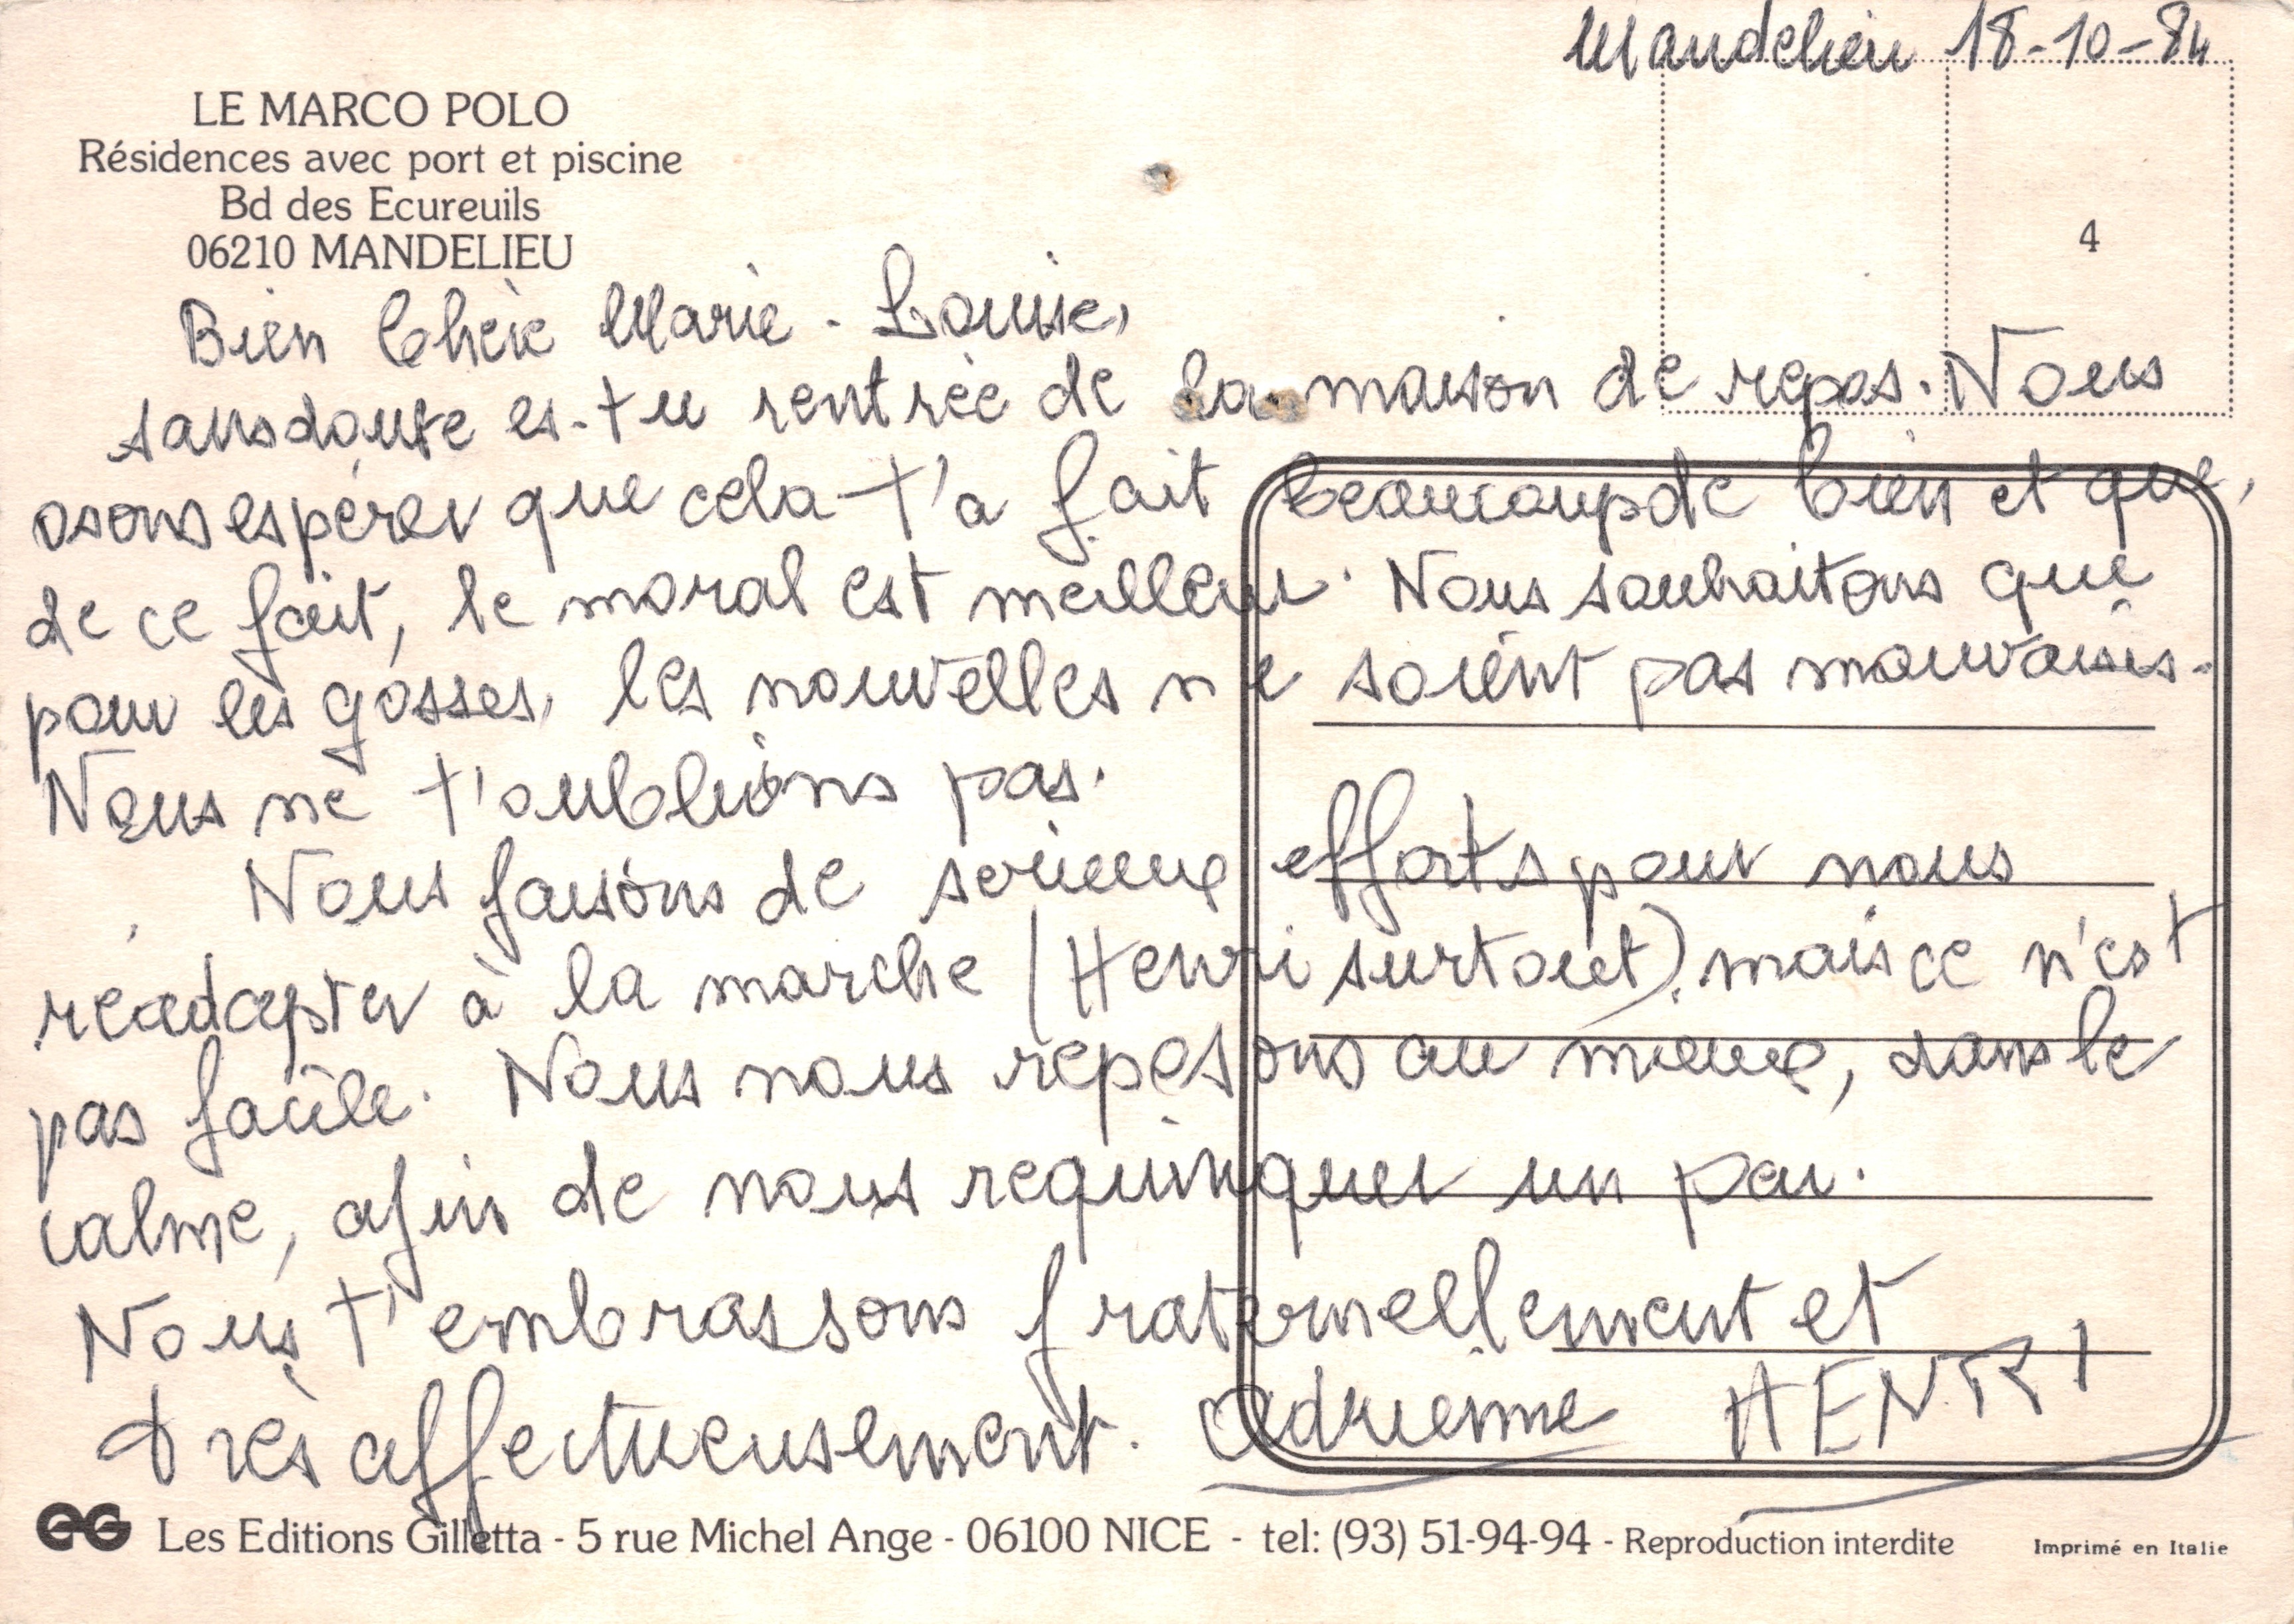 Mandelieu 18-10-84
LE MARCO POLO
Résidences avec port et piscine
Bd des Ecureuils
06210 MANDELIEU
4
Bien Chère Marie-Louise,
sans doute es-tu rentrée de la maison de repos. Nous
osons espérer que cela t'a fait beaucoup de bien et que,
de ce fait, le moral est meilleur. Nous souhaitons que
pour les gosses, les nouvelles ne soient pas mauvaises.
Nous ne t'oublions pas.
Nous faisons de sérieux efforts pour nous
réadapter à la marche (Henri surtout), mais ce n'est
pas facile. Nous nous reposons au mieux, dans le
calme, afin de nous requinquer un peu.
Nous t'embrassons fraternellement et
très affectueusement. Adrienne HENRI
GG Les Editions Gilletta - 5 rue Michel Ange - 06100 NICE - tel: (93) 51-94-94 - Reproduction interdite Imprimé en Italie